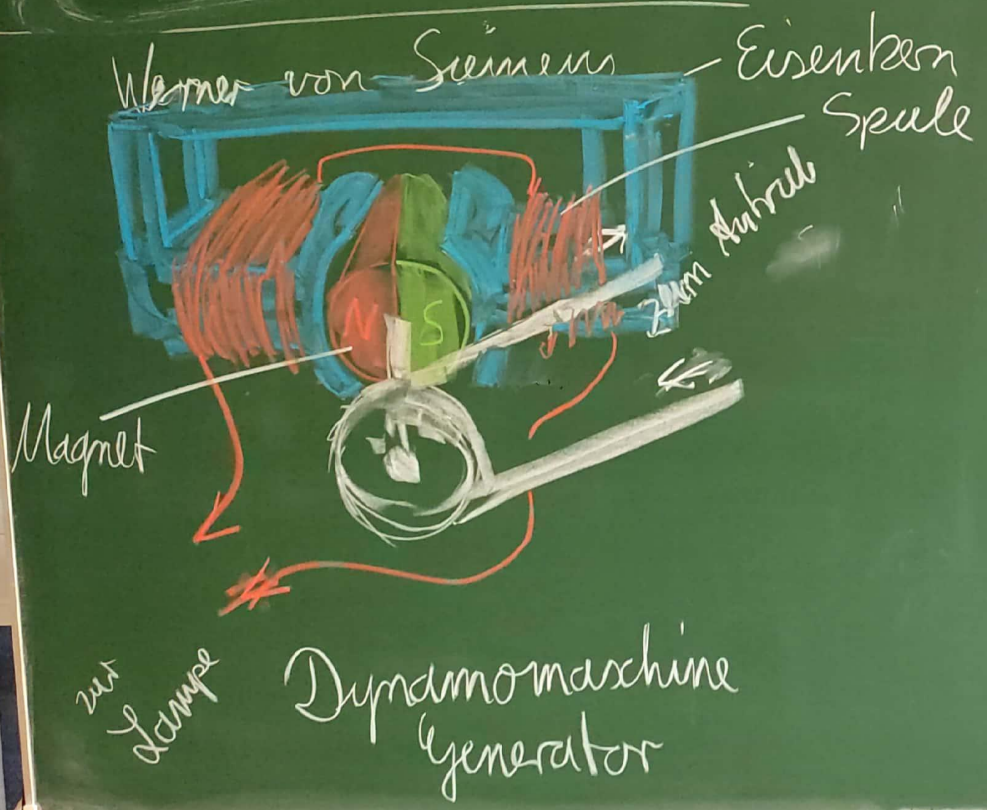 Werner von Siemens
Eisenkern
Spule
zum Antrieb
N S
Magnet
zur
Lampe
Dynamomaschine
Generator